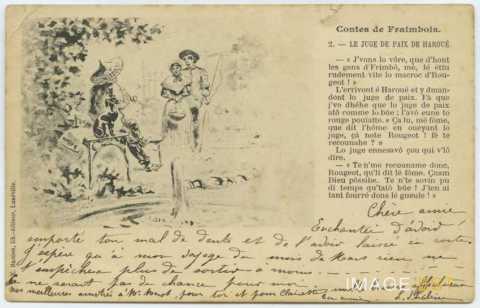 Contes de Fraimbois.
2. — LE JUGE DE PAIX DE HAROUÉ
— « J'vons lo vôre, que d'hont
les gens d'Frimbô, mè, lé étiu
rudement vite lo macroc d'Rou-
geot ! »
L'errivont é Haroué et y dman-
dont lo juge de paix. Fâ que
j've dhéhe que lo juge de paix
atô comme lo bûe ; l'avô eune to
rouge poulatte. « Ça lu, mé fôme,
que dit l'hôme en oueyant lo
juge, çà note Rougeot ! lé te
recounahe ? »
Lo juge ennesavô çou qui v'lô
dire.
— « Te n'me recouname donc,
Rougeot, qu'li dit lé fôme. Quam
Dieu pôssibe. Te n'te sovin pu
di temps qu'tatô bûe ! J'ten ai
tant fourré dons lé gueule ! »
Bastien, lib.-éditeur, Lunéville.
Chère amie,
Enchantée d'avoir
emporté ton mal de dents et de l'avoir laissé en route
J'espère qu'à mon voyage du mois de Mars rien ne
t'empêchera plus de sortir à moins
ce ne serait pas de chance pour moi
meilleures amitiés à
IMAGE